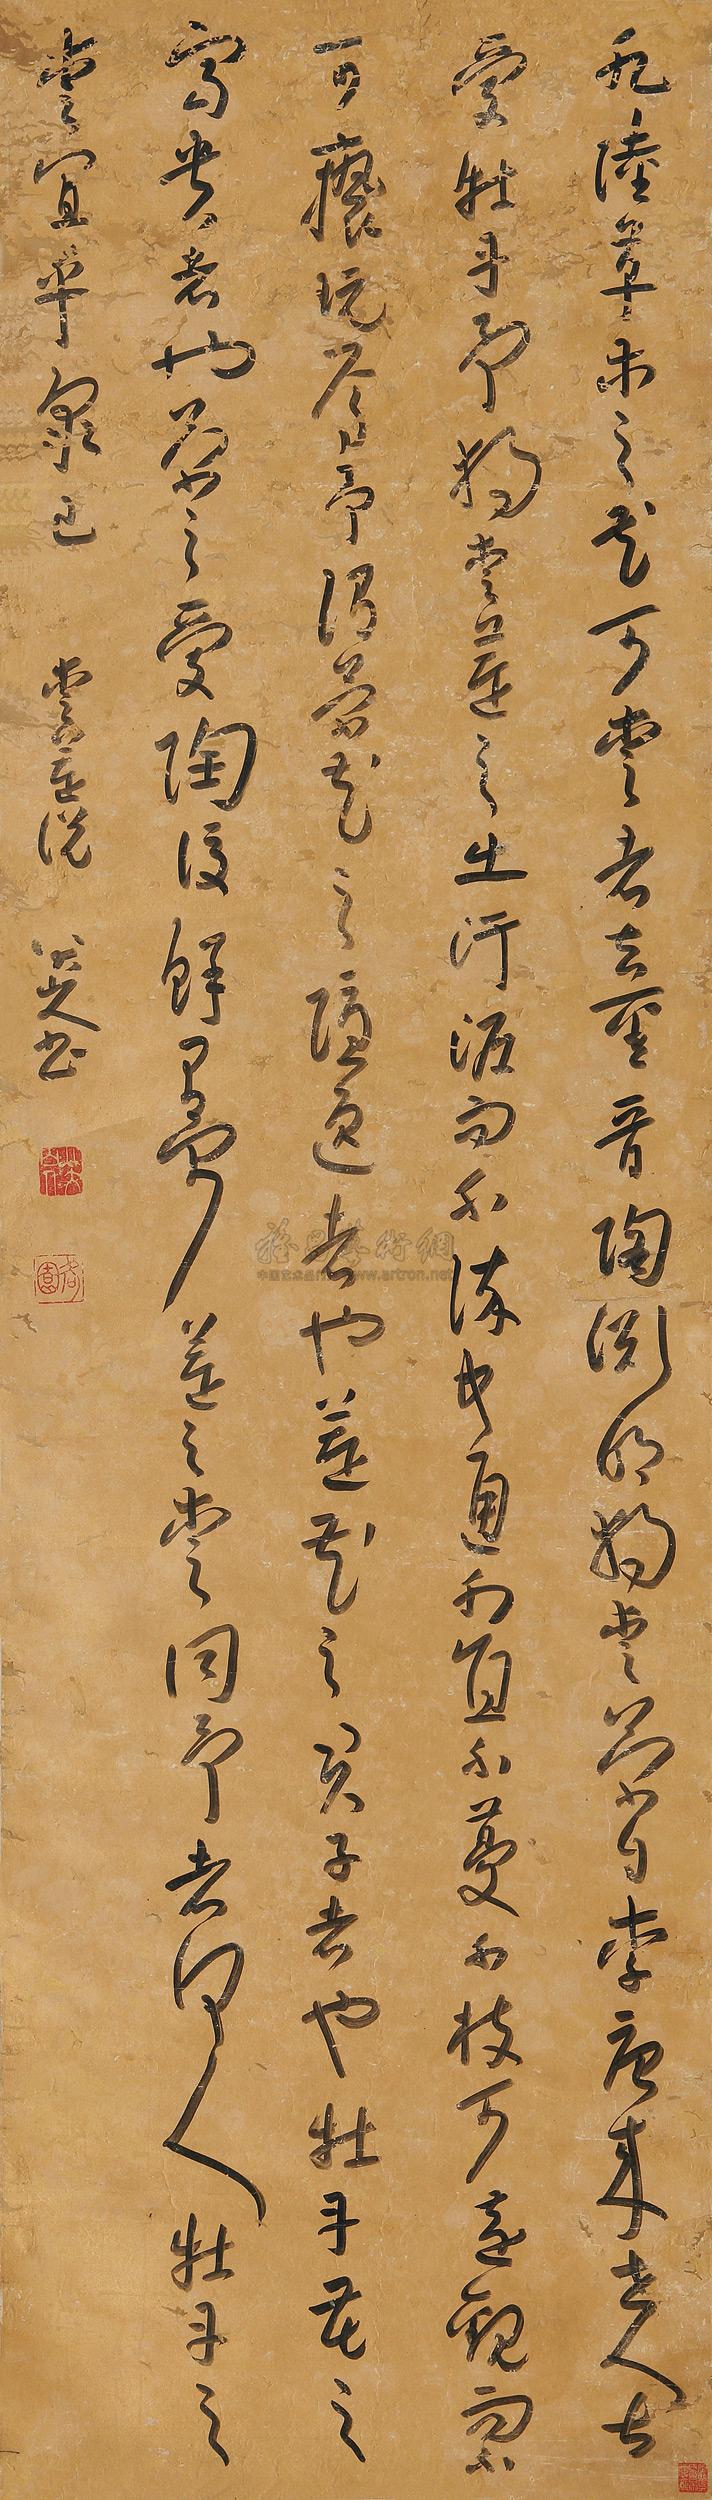 水陸草木之花可愛者甚蕃晉陶淵明獨愛菊自李唐來世人甚
愛牡丹予獨愛蓮之出汙泥而不染中通外直不蔓不枝可遠觀而不
可褻玩焉予謂菊花之隱逸者也蓮花之君子者也牡丹花之
富貴者也菊之愛陶後鮮有聞蓮之愛同予者何人牡丹之
愛宜乎衆已 愛蓮說 八大山人書
雅昌藝術網
www.artron.net